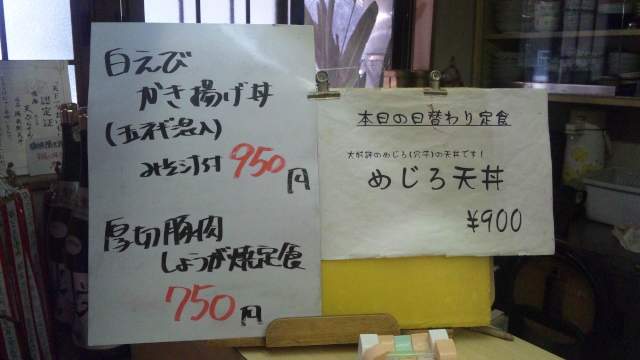 白えび
かき揚げ丼
(玉ネギ混入)
みそ汁付 950円
厚切豚肉
しょうが焼定食
750円
本日の日替わり定食
大好評のめじろ(穴子)の天丼です!
めじろ天丼
¥900
認定証